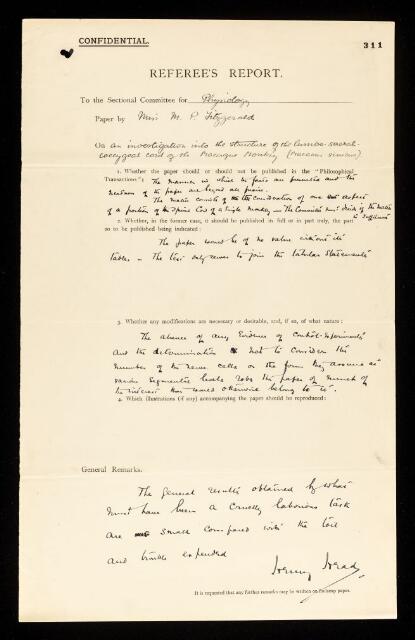 CONFIDENTIAL.
311
REFEREE'S REPORT.
To the Sectional Committee for Physiology
Paper by Miss M. P. Fitzgerald
On an investigation into the structure of the lumbo-sacral-
coccygeal cord of the Macaque Monkey (Macacus sinicus).
1. Whether the paper should or should not be published in the "Philosophical
Transactions": The manner in which the facts are presented and the
neatness of the paper are beyond all praise.
The matter consists of the consideration of one aspect
of a portion of the Spinal Cord of a single monkey — The Committee must decide if the matter
is sufficient
2. Whether, in the former case, it should be published in full or in part only, the part
so to be published being indicated:
The paper would be of no value without its
tables — The text only serves to join the tabular statements
3. Whether any modifications are necessary or desirable, and, if so, of what nature:
The absence of any evidence of control-experiments
and the determination not to consider the
number of the nerve cells or the form they assume at
various segmental levels robs the paper of much of
the interest that would otherwise belong to it.
4. Which illustrations (if any) accompanying the paper should be reproduced:
General Remarks.
The general results obtained by what
must have been a cruelly laborious task
are small compared with the toil
and trouble expended
Henry Head
It is requested that any further remarks may be written on foolscap paper.